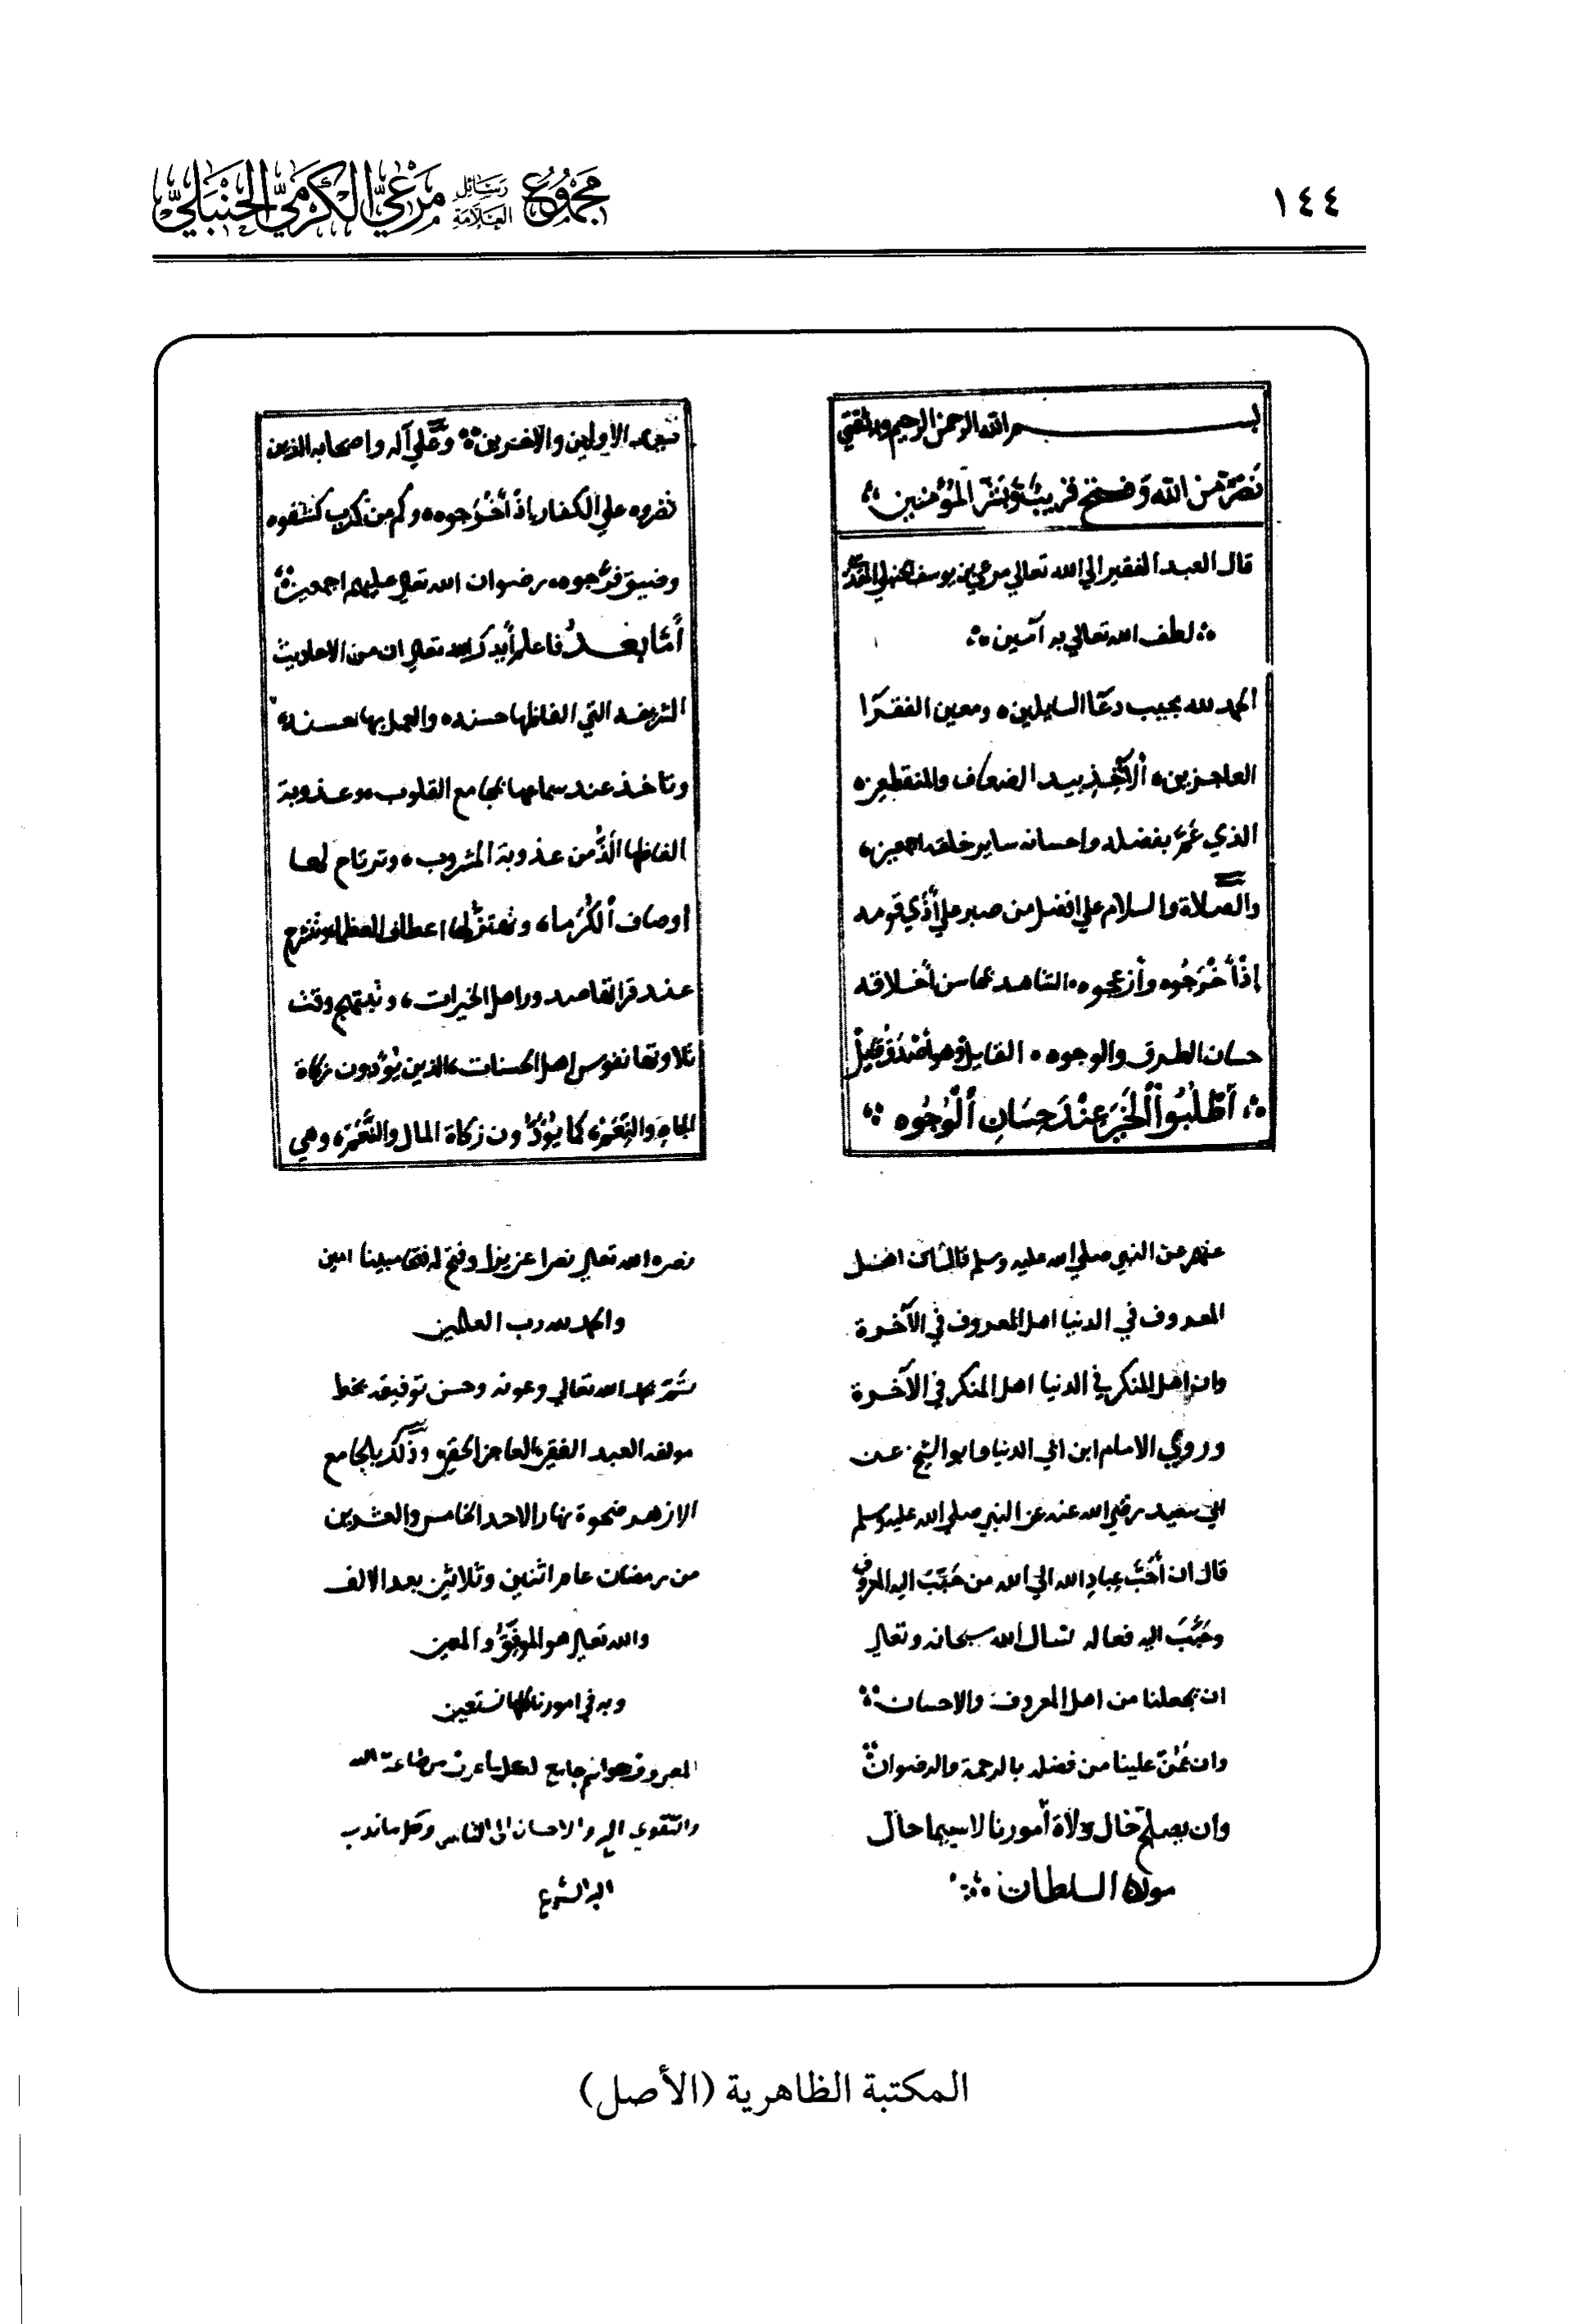 ١٤٤
مجموع رسائل العلامة مرعي الكرمي الحنبلي
بسم الله الرحمن الرحيم وبه ثقتي
نصر من الله وفتح قريب وبشر المؤمنين
قال العبد الفقير الي الله تعالي مرعي بن يوسف الحنبلي المقدسي
لطف الله تعالي به آمين
الحمد لله مجيب دعا السايلين ومعين الفقرا
العاجزين الآخذ بيد الضعاف والمنقطعين
الذي عم بفضله واحسانه ساير خلقه اجمعين
والصلاة والسلام علي افضل من صبر علي أذي قومه
إذ أخرجوه وأزعجوه الشاهد محاسن أخلاقه
حسان الطرق والوجوه القايل وهو أصدق قيل
أطلبوا الخير عند حسان الوجوه
سيد الأولين والآخرين وعلي آله واصحابه الذين
نصروه علي الكفار إذ أخرجوه وكم من كرب كشفوه
وضيق فرجوه رضوان الله تعالي عليهم اجمعين
أما بعد فاعلم أيدك الله تعالي ان من الاحاديث
الشريفه التي الفاظها حسنه والعمل بها حسنه
وتاخذ عند سماعها بمجامع القلوب وعذوبة
الفاظها الذ من عذوبة المشروب وترتاح لها
اوصاف الكرما وتهتز لها اعطاف العظما وتنشرح
عند قرا القاصد وراصل الخيرات وتبتهج وقت
تلاوتها نفوس اهل الحسنات الذين يؤدون زكاة
الجاه والنعم كما يؤدون زكاة المال والنعم وهي
عنهم عن النبي صلي الله عليه وسلم قال ان اهل
المعروف في الدنيا اهل المعروف في الآخرة
وان اهل المنكر في الدنيا اهل المنكر في الآخرة
وروي الامام ابن ابي الدنيا وابو الشيخ عن
ابي سعيد رضي الله عنه عن النبي صلي الله عليه وسلم
قال ان أحب عباد الله الي الله من حبب اليه المعروف
وحبب اليه فعاله نسال الله سبحانه وتعالي
ان يجعلنا من اهل المعروف والاحسان
وان يمن علينا من فضله بالرحمة والرضوان
وان يصلح حال ولاة أمورنا لا سيما حال
مولانا السلطان
نصره الله تعالي نصرا عزيزا وفتح له فتحا مبينا امين
والحمد لله رب العالمين
تم بحمد الله تعالي وعونه وحسن توفيقه بخط
مولفه العبد الفقير العاجز الحقير وذلك بالجامع
الازهر ضحوة نهار الاحد الخامس والعشرين
من رمضان عام اثنين وثلاثين بعد الالف
والله تعالي هو الموفق والمعين
وبه في امورنا كلها نستعين
المعروف هو اسم جامع لكل ما عرف من طاعة الله
والتقوي اليه والاحسان الى الناس وكل ما ندب
اليه الشرع
المكتبة الظاهرية (الأصل)